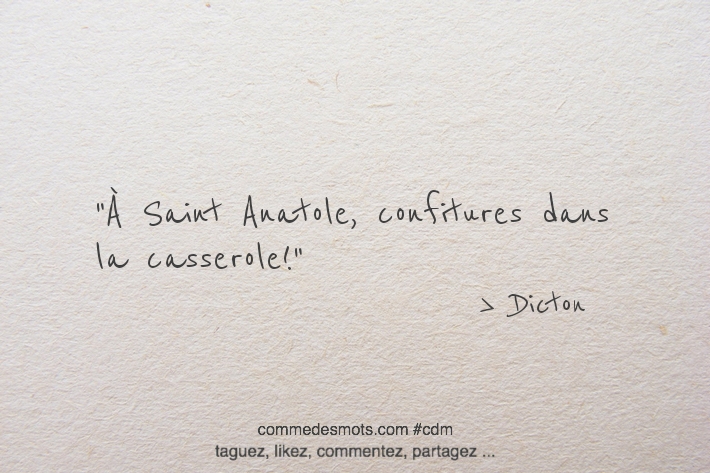 "À Saint Anatole, confitures dans
la casserole!"
> Dicton
commedesmots.com #cdm
taguez, likez, commentez, partagez ...